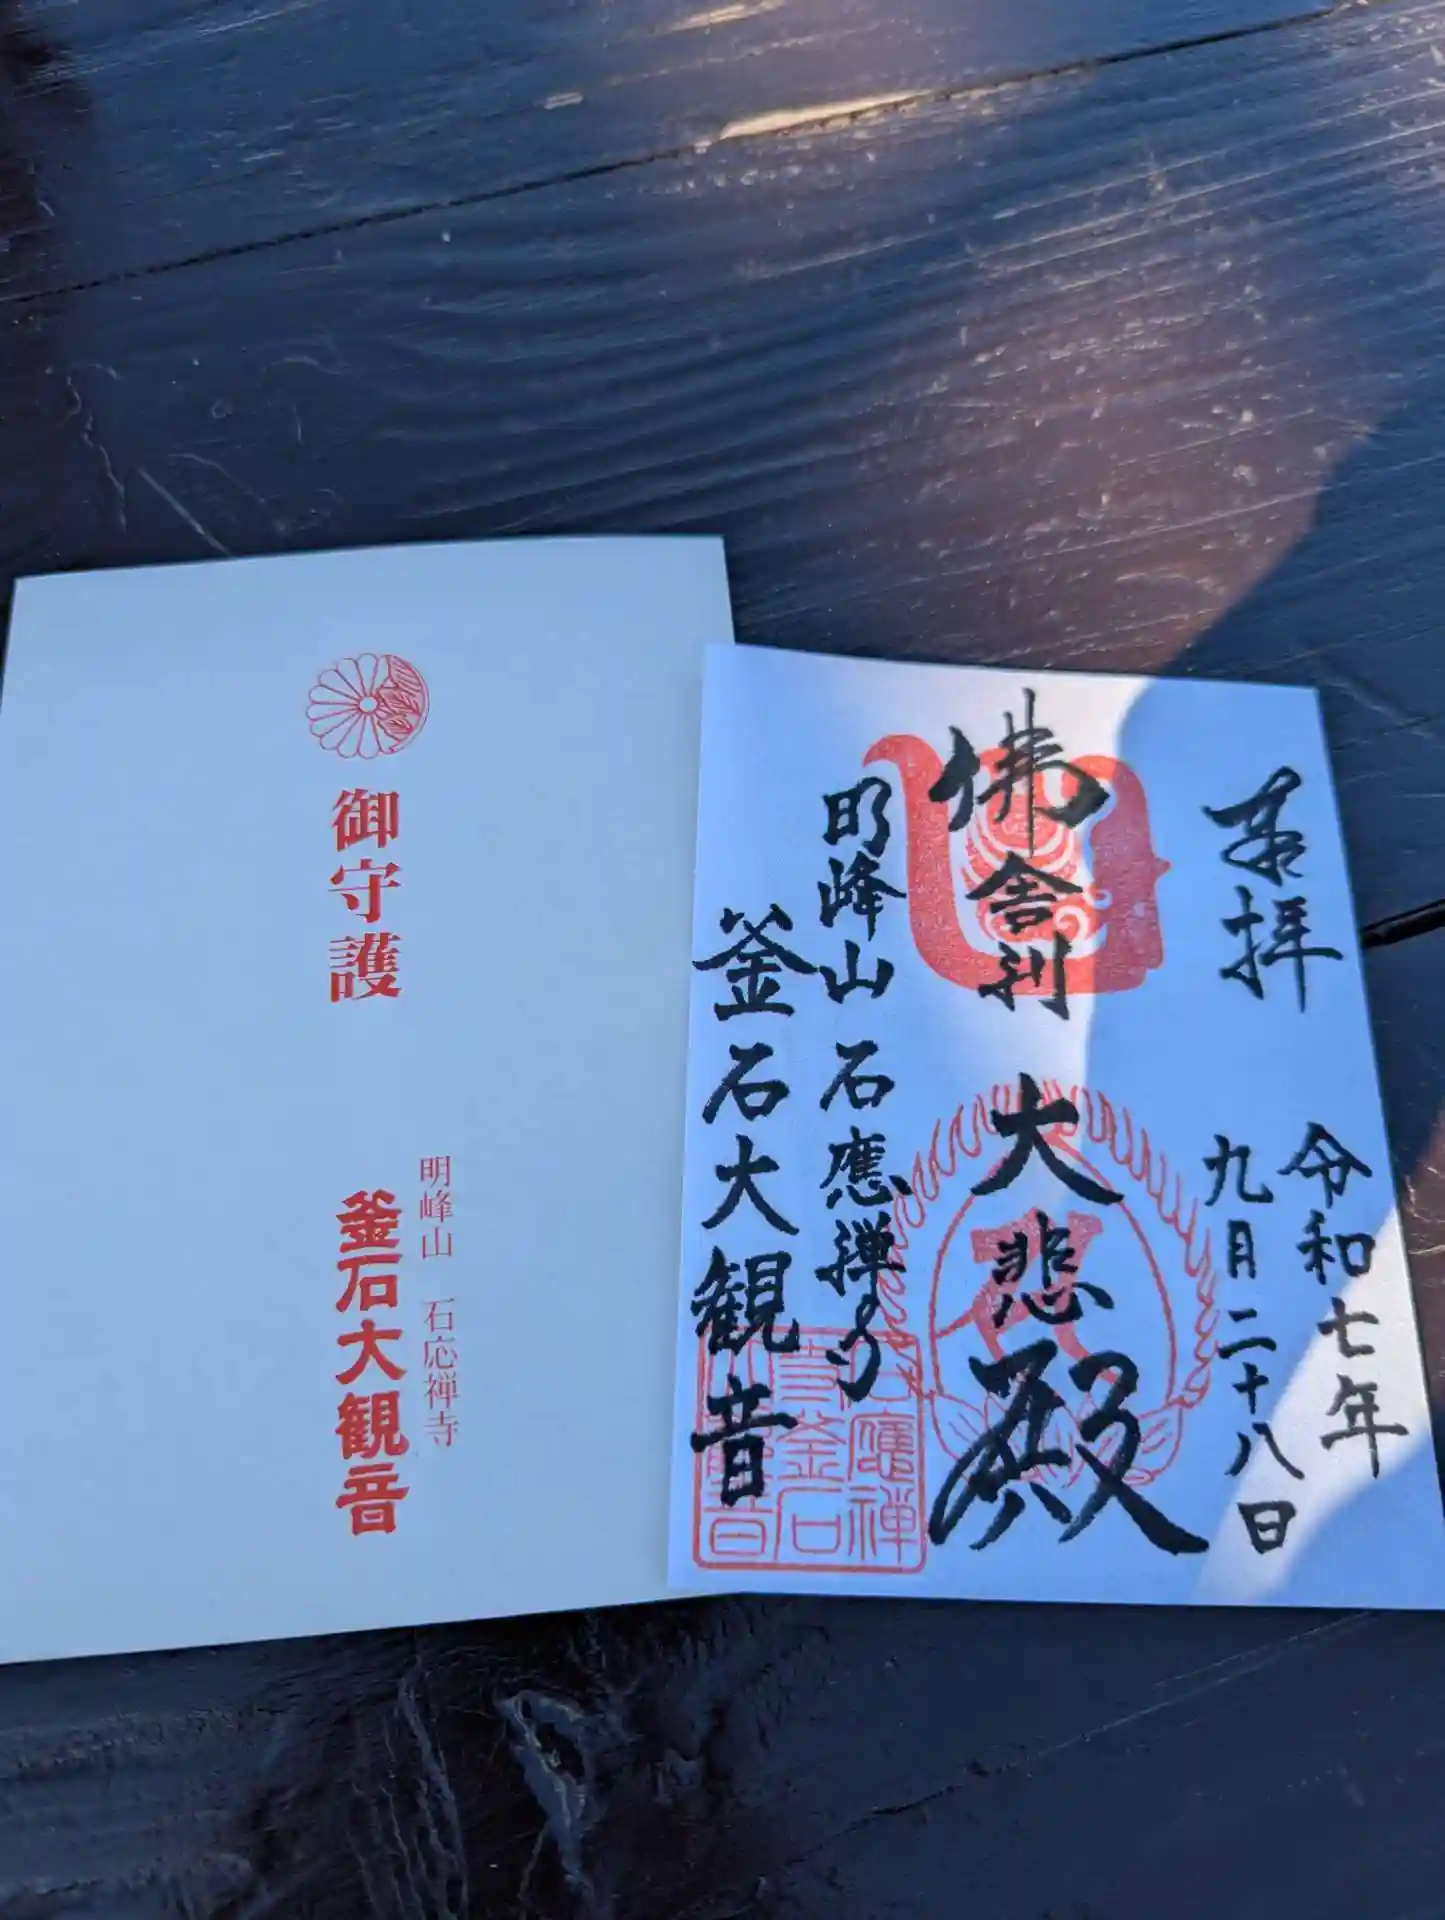 御守護
明峰山 石応禅寺
釜石大観音
奉拝
令和七年
九月二十八日
佛舎利 大悲殿
明峰山 石應禅寺
釜石大観音
石應禅
寺釜石
大観音